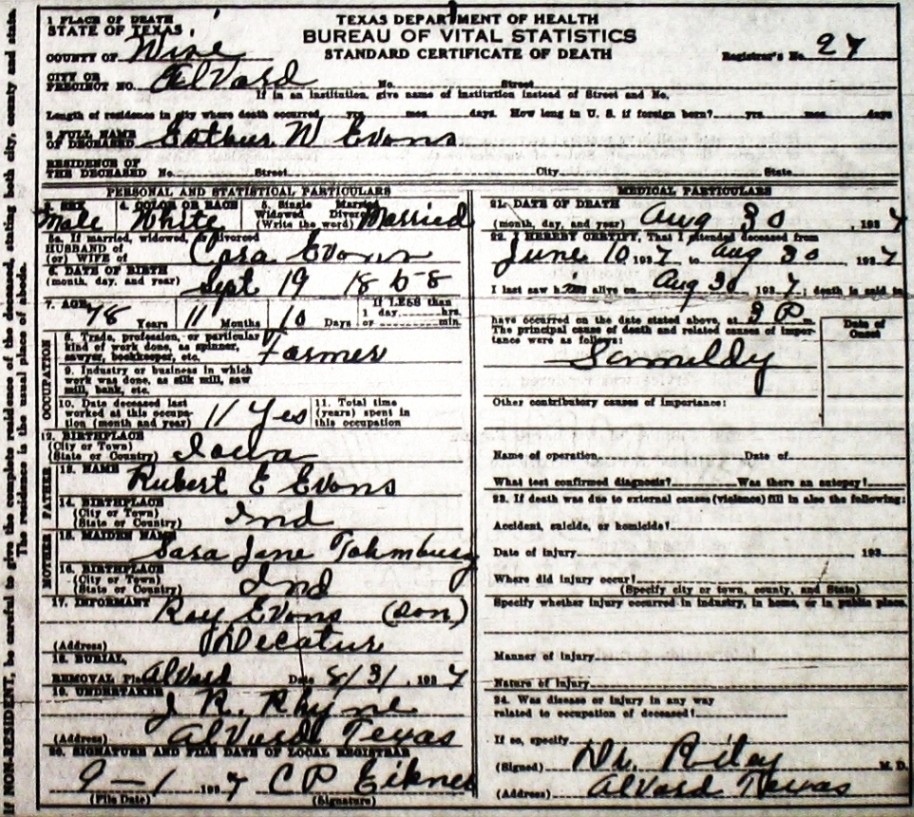 TEXAS DEPARTMENT OF HEALTH
BUREAU OF VITAL STATISTICS
STANDARD CERTIFICATE OF DEATH
1 PLACE OF DEATH
STATE OF TEXAS,
COUNTY OF Wise
Registrar's No. 27
CITY OR
PRECINCT NO. Alvard No. Street
If in an institution, give name of institution instead of Street and No.
Length of residence in city where death occurred yrs. mos. days. How long in U. S. if foreign born? yrs. mos. days
2 FULL NAME
OF DECEASED W Evans
RESIDENCE OF
THE DECEASED No. Street City State
PERSONAL AND STATISTICAL PARTICULARS
3. SEX 4. COLOR OR RACE 5. Single Married
Widowed Divorced
(Write the word)
Male White Married
5a. If married, widowed, or divorced
HUSBAND OF
(or) WIFE of Cora Evans
6. DATE OF BIRTH
(month, day, and year) Sept 19 1858
7. AGE 78 Years 11 Months 10 Days
If LESS than
1 day hrs.
or min.
OCCUPATION
8. Trade, profession, or particular
kind of work done, as spinner,
sawyer, bookkeeper, etc. Farmer
9. Industry or business in which
work was done, as silk mill, saw
mill, bank, etc.
10. Date deceased last
worked at this occupa-
tion (month and year) 11 Yes
11. Total time
(years) spent in
this occupation
12. BIRTHPLACE
(City or Town)
(State or Country) Iowa
FATHER
13. NAME Rubert E Evans
14. BIRTHPLACE
(City or Town)
(State or Country) Ind
MOTHER
15. MAIDEN NAME Sara Jane
16. BIRTHPLACE
(City or Town)
(State or Country) Ind
17. INFORMANT Roy Evans (son)
(Address) Decatur
18. BURIAL,
REMOVAL Place Alvard Date 8/31, 1937
19. UNDERTAKER
J. R. Rhyne
(Address) Alvard Texas
20. SIGNATURE AND FILE DATE OF LOCAL REGISTRAR
9-1 1937 C P Eikner
(File Date) (Signature)
MEDICAL PARTICULARS
21. DATE OF DEATH
(month, day, and year) Aug 30, 1937
22. I HEREBY CERTIFY, That I attended deceased from
June 10 1937, to Aug 30 1937
I last saw him alive on Aug 30, 1937; death is said to
have occurred on the date stated above, at 3 P
The principal cause of death and related causes of impor-
tance were as follows:
Date of
Onset
Other contributory causes of importance:
Name of operation Date of
What test confirmed diagnosis? Was there an autopsy?
23. If death was due to external causes (violence) fill in also the following:
Accident, suicide, or homicide?
Date of injury 193
Where did injury occur?
(Specify city or town, county, and State)
Specify whether injury occurred in industry, in home, or in public place.
Manner of injury
Nature of injury
24. Was disease or injury in any way
related to occupation of deceased?
If so, specify
(Signed) Dr. Riley M. D.
(Address) Alvard Texas
If NON-RESIDENT, be careful to give the complete residence of the deceased, stating both city, county and state.
The residence is the usual place of abode.